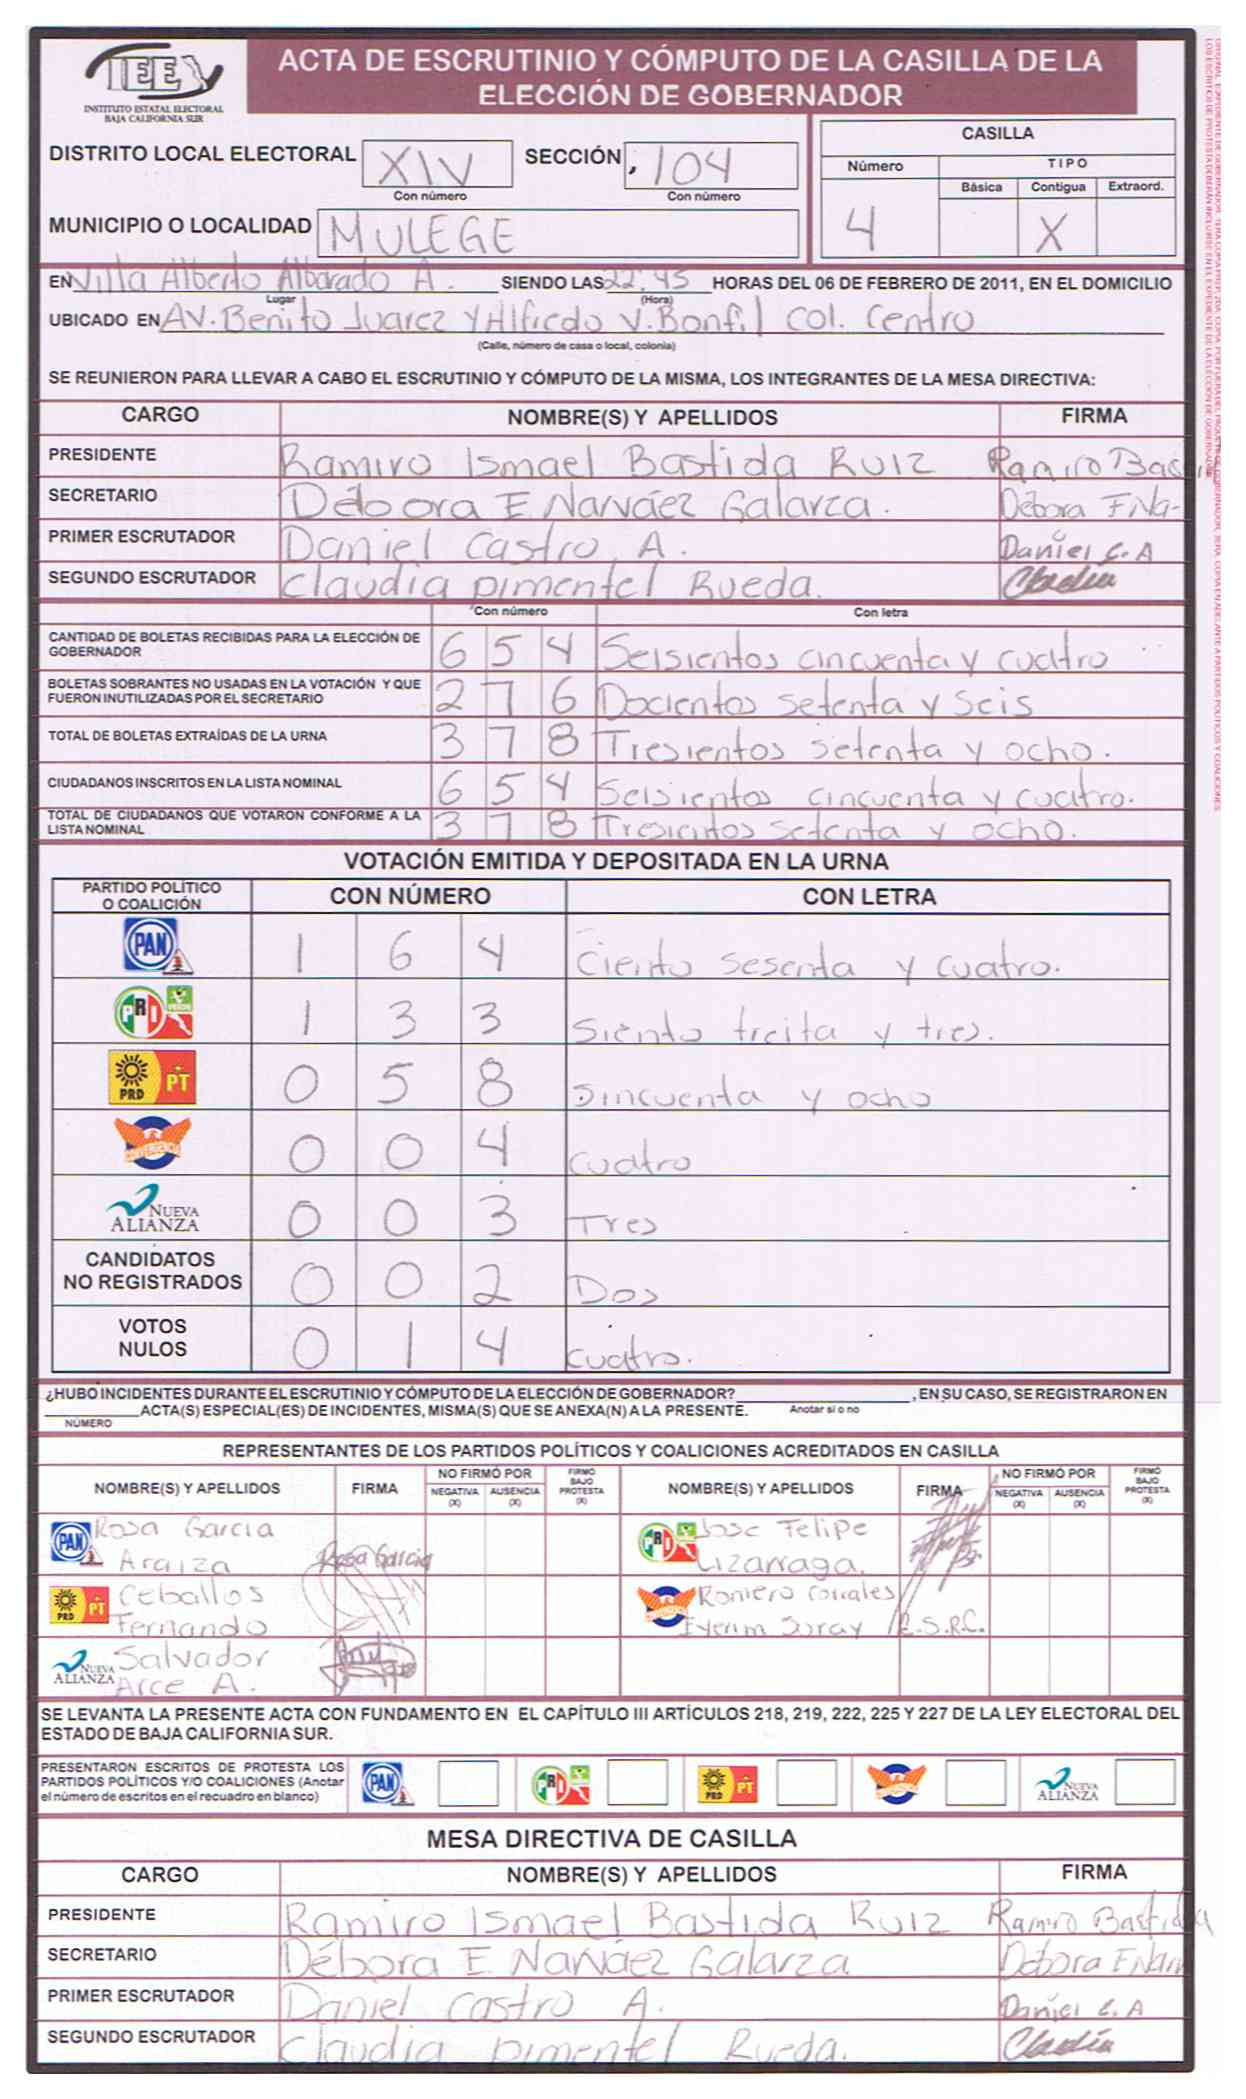 IEE
INSTITUTO ESTATAL ELECTORAL
BAJA CALIFORNIA SUR
ACTA DE ESCRUTINIO Y CÓMPUTO DE LA CASILLA DE LA
ELECCIÓN DE GOBERNADOR
DISTRITO LOCAL ELECTORAL XIV SECCIÓN 104
Con número Con número
MUNICIPIO O LOCALIDAD MULEGE
CASILLA
Número TIPO
Básica Contigua Extraord.
4 X
EN Villa Alberto Albarado A. SIENDO LAS 22:45 HORAS DEL 06 DE FEBRERO DE 2011, EN EL DOMICILIO
Lugar (Hora)
UBICADO EN AV. Benito Juarez Y Alfredo V. Bonfil COL. Centro
(Calle, número de casa o local, colonia)
SE REUNIERON PARA LLEVAR A CABO EL ESCRUTINIO Y CÓMPUTO DE LA MISMA, LOS INTEGRANTES DE LA MESA DIRECTIVA:
CARGO NOMBRE(S) Y APELLIDOS FIRMA
PRESIDENTE Ramiro Ismael Bastida Ruiz Ramiro
SECRETARIO Débora E Narváez Galarza. Débora
PRIMER ESCRUTADOR Daniel Castro A. Daniel C. A
SEGUNDO ESCRUTADOR Claudia Pimentel Rueda. Claudia
Con número Con letra
CANTIDAD DE BOLETAS RECIBIDAS PARA LA ELECCIÓN DE
GOBERNADOR 6 5 4 Seisientos cincuenta y cuatro
BOLETAS SOBRANTES NO USADAS EN LA VOTACIÓN Y QUE
FUERON INUTILIZADAS POR EL SECRETARIO 2 7 6 Docientos setenta y seis
TOTAL DE BOLETAS EXTRAÍDAS DE LA URNA 3 7 8 Tresientos setenta y ocho.
CIUDADANOS INSCRITOS EN LA LISTA NOMINAL 6 5 4 Seisientos cincuenta y cuatro.
TOTAL DE CIUDADANOS QUE VOTARON CONFORME A LA
LISTA NOMINAL 3 7 8 Tresientos setenta y ocho.
VOTACIÓN EMITIDA Y DEPOSITADA EN LA URNA
PARTIDO POLÍTICO
O COALICIÓN CON NÚMERO CON LETRA
PAN 1 6 4 Ciento sesenta y cuatro.
PRI VERDE 1 3 3 Siento treita y tres.
PRD PT 0 5 8 Sincuenta y ocho
CONVERGENCIA 0 0 4 cuatro
NUEVA ALIANZA 0 0 3 Tres
CANDIDATOS
NO REGISTRADOS 0 0 2 Dos
VOTOS
NULOS 0 1 4 cuatro.
¿HUBO INCIDENTES DURANTE EL ESCRUTINIO Y CÓMPUTO DE LA ELECCIÓN DE GOBERNADOR? , EN SU CASO, SE REGISTRARON EN
ACTA(S) ESPECIAL(ES) DE INCIDENTES, MISMA(S) QUE SE ANEXA(N) A LA PRESENTE. Anotar sí o no
NÚMERO
REPRESENTANTES DE LOS PARTIDOS POLÍTICOS Y COALICIONES ACREDITADOS EN CASILLA
NOMBRE(S) Y APELLIDOS FIRMA NO FIRMÓ POR NEGATIVA (X) AUSENCIA (X) FIRMÓ BAJO PROTESTA (X) NOMBRE(S) Y APELLIDOS FIRMA NO FIRMÓ POR NEGATIVA (X) AUSENCIA (X) FIRMÓ BAJO PROTESTA (X)
PAN Rosa Garcia PRI VERDE Jose Felipe
Araiza Rosa Garcia Lizarraga.
PRD PT Ceballos Romero Corrales
Fernando Suray E.S.R.C.
NUEVA ALIANZA Salvador
Arce A.
SE LEVANTA LA PRESENTE ACTA CON FUNDAMENTO EN EL CAPÍTULO III ARTÍCULOS 218, 219, 222, 225 Y 227 DE LA LEY ELECTORAL DEL
ESTADO DE BAJA CALIFORNIA SUR.
PRESENTARON ESCRITOS DE PROTESTA LOS
PARTIDOS POLÍTICOS Y/O COALICIONES (Anotar
el número de escritos en el recuadro en blanco) PAN PRI VERDE PRD PT CONVERGENCIA NUEVA ALIANZA
MESA DIRECTIVA DE CASILLA
CARGO NOMBRE(S) Y APELLIDOS FIRMA
PRESIDENTE Ramiro Ismael Bastida Ruiz Ramiro Bastida
SECRETARIO Débora E. Narváez Galarza Débora
PRIMER ESCRUTADOR Daniel Castro A. Daniel C. A
SEGUNDO ESCRUTADOR Claudia Pimentel Rueda. Claudia